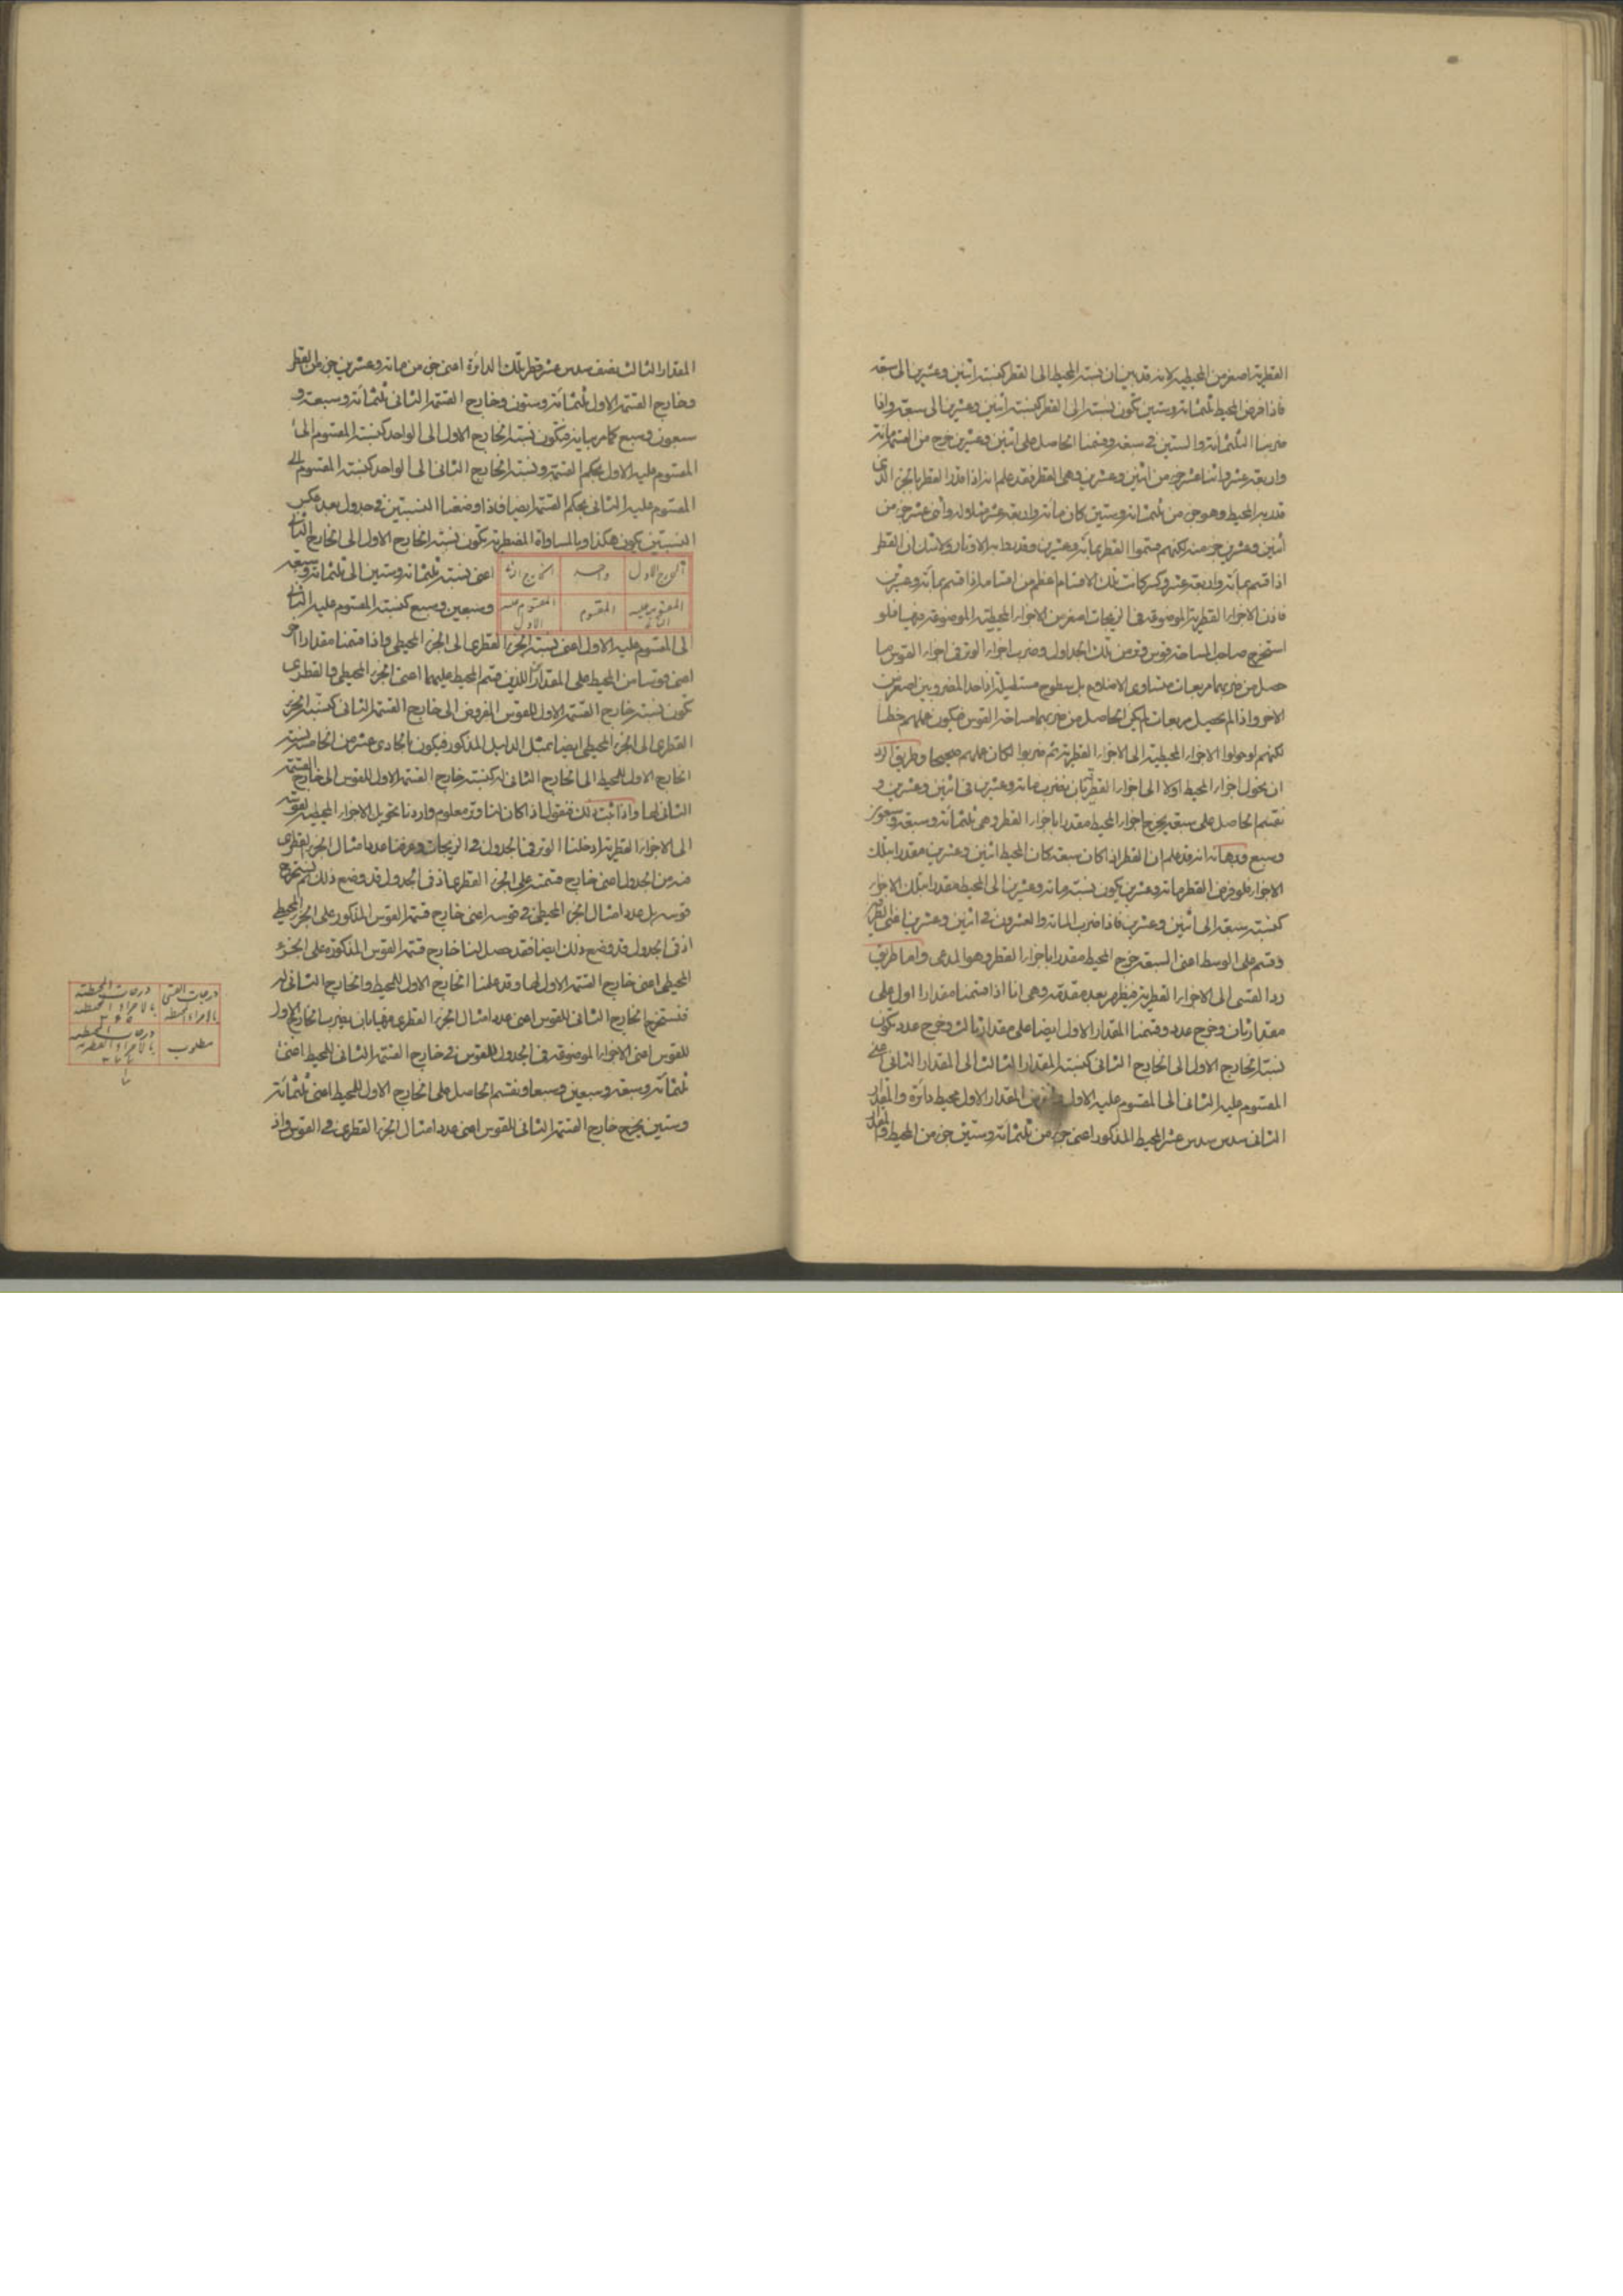 القطرية اصغر من المحيطية لانه قد بين ان نسبة المحيط الى القطر كنسبة اثنين وعشرين الى سبعة
فاذا فرض المحيط ثلثمائة وستين تكون نسبته الى القطر كنسبة اثنين وعشرين الى سبعة واذا
ضربنا الثلثمائة والستين في سبعة وقسمنا الحاصل على اثنين وعشرين خرج من القسمة مائة
واربعة عشر واثنا عشر جزء من اثنين وعشرين وهى القطر فقد علم انه اذا قدر القطر بالجزء الذى
قدر به المحيط وهو جزء من ثلثمائة وستين كان مائة واربعة عشر مثلا له واثنى عشر جزء من
اثنين وعشرين جزء منه لكنهم قسموا القطر بمائة وعشرين وقدروا به الاوتار ولا شك ان القطر
اذا قسم بمائة واربعة عشر وكسر كانت تلك الاقسام اعظم من اقسامه اذا قسم بمائة وعشرين
فاذن الاجزاء القطرية الموضوعة في الزيجات اصغر من الاجزاء المحيطية الموضوعة فيها فلو
استخرج صاحب المساحة قوس وتر من تلك الجداول وضرب اجزاء الوتر في اجزاء القوس ما
حصل من ضربهما مربعات متساوى الاضلاع بل سطوح مستطيلة اذ احد المضروبين اصغر من
الاخر واذا لم يحصل مربعات لم يكن الحاصل من ضربهما مساحة القوس فيكون عملهم خطأ
لكنهم لو حولوا الاجزاء المحيطية الى الاجزاء القطرية ثم ضربوا لكان عملهم صحيحا وطريق الرد
ان يحول اجزاء المحيط اولا الى اجزاء القطر بان نضرب مائة وعشرين في اثنين وعشرين و
نقسم الحاصل على سبعة يخرج اجزاء المحيط مقدرا باجزاء القطر وهى ثلثمائة وسبعة وسبعون
وسبع وبرهانه انه قد علم ان القطر اذا كان سبعة كان المحيط اثنين وعشرين مقدرا بتلك
الاجزاء فلو فرض القطر مائة وعشرين يكون نسبة مائة وعشرين الى المحيط مقدرا بتلك الاجزاء
كنسبة سبعة الى اثنين وعشرين فاذا ضرب المائة والعشرون في اثنين وعشرين اعنى الطرفين
وقسم على الوسط اعنى السبعة خرج المحيط مقدرا باجزاء القطر وهو المدعى واما طريق
رد القسى الى الاجزاء القطرية فيظهر بعد مقدمة وهى انا اذا قسمنا مقدارا اول على
مقدار ثان وخرج عدد وقسمنا المقدار الاول ايضا على مقدار ثالث وخرج عدد تكون
نسبة الخارج الاول الى الخارج الثانى كنسبة المقدار الثالث الى المقدار الثانى اعنى
المقسوم عليه الثانى الى المقسوم عليه الاول المقدار الاول محيط دائرة والمقدار
الثانى سدس سدس عشر المحيط المذكور اعنى جزء من ثلثمائة وستين جزء من المحيط والمقدار
المقدار الثالث نصف سدس عشر قطر تلك الدائرة اعنى جزء من مائة وعشرين جزء من القطر
وخارج القسمة الاول ثلثمائة وستون وخارج القسمة الثانى ثلثمائة وسبعة و
سبعون وسبع كما مر بيانه فيكون نسبة الخارج الاول الى الواحد كنسبة المقسوم الى
المقسوم عليه الاول بحكم القسمة ونسبة الخارج الثانى الى الواحد كنسبة المقسوم الى
المقسوم عليه الثانى بحكم القسمة ايضا فاذا وضعنا النسبتين في جدول بعد عكس
النسبتين يكون هكذا وبالمساواة المضطربة تكون نسبة الخارج الاول الى الخارج الثانى
الخارج الاول واحد الخارج الثانى
المقسوم عليه الثانى المقسوم المقسوم عليه الاول
اعنى نسبة ثلثمائة وستين الى ثلثمائة وسبعة
وسبعين وسبع كنسبة المقسوم عليه الثانى
الى المقسوم عليه الاول اعنى نسبة الجزء القطرى الى الجزء المحيطى واذا قسمنا مقدارا اخر
اعنى قوسا من المحيط على المقدارين اللذين قسم المحيط عليهما اعنى الجزء المحيطى والقطرى
تكون نسبة خارج القسمة الاول للقوس المفروض الى خارج القسمة الثانى كنسبة الجزء
القطرى الى الجزء المحيطى ايضا بمثل الدليل المذكور فيكون بالحادى عشر من الخامسة نسبة
الخارج الاول للمحيط الى الخارج الثانى له كنسبة خارج القسمة الاول للقوس الى خارج القسمة
الثانى لها واذا ثبت ذلك فنقول اذا كان لنا وتر معلوم واردنا تحويل الاجزاء المحيطية لقوسه
الى الاجزاء القطرية ادخلنا الوتر في الجدول في الزيجات وعرفنا عدد امثال الجزء القطرى
فيه من الجدول اعنى خارج قسمته على الجزء القطرى اذ في الجدول قد وضع ذلك ثم نستخرج
قوسه بل عدد امثال الجزء المحيطى في قوسه اعنى خارج قسمة القوس المذكور على الجزء المحيطى
اذ في الجدول قد وضع ذلك ايضا فقد حصل لنا خارج قسمة القوس المذكورة على الجزء
المحيطى اعنى خارج القسمة الاول لها وقد علمنا الخارج الاول للمحيط والخارج الثانى له
فنستخرج الخارج الثانى للقوس اعنى عدد امثال الجزء القطرى فيها بان يضرب الخارج الاول
للقوس اعنى الاجزاء الموضوعة في الجدول للقوس في خارج القسمة الثانى للمحيط اعنى
ثلثمائة وسبعة وسبعين وسبعا ونقسم الحاصل على الخارج الاول للمحيط اعنى ثلثمائة
وستين يخرج خارج القسمة الثانى للقوس اعنى عدد امثال الجزء القطرى في القوس واذ
درجات القسى درجات المحيطية
بالاجزاء المحيطية
مطلوب درجات المحيطية
بالاجزاء القطرية